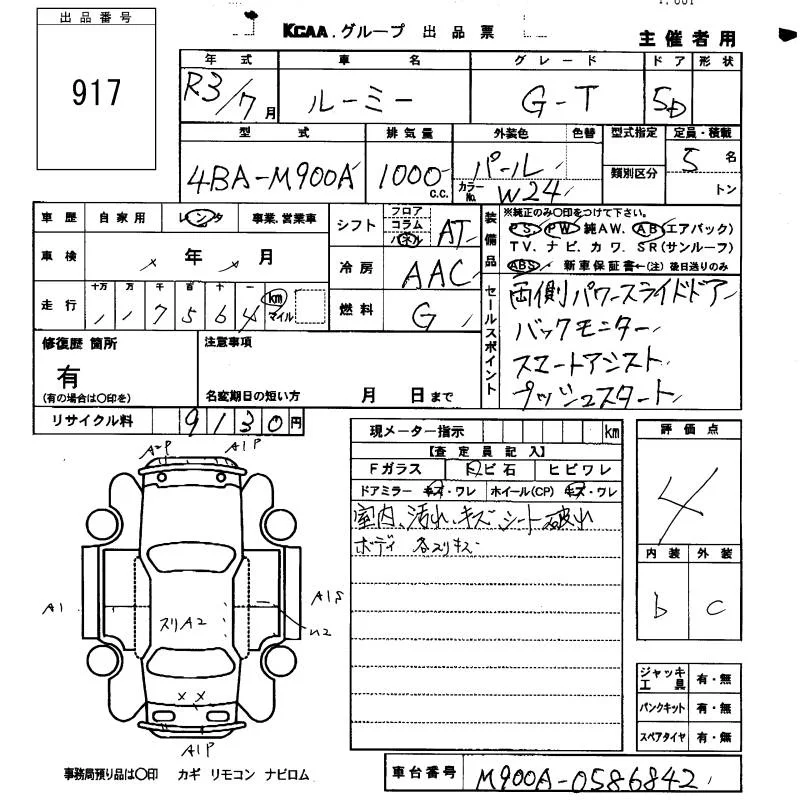 1.001
出品番号
917
KCAA.グループ 出品票
主催者用
年式 車名 グレード ドア 形状
R3/7月 ルーミー G-T 5D
型式 排気量 外装色 色替 型式指定 定員・積載
4BA-M900A 1000 c.c. パール 5 名
カラーNo. W24 類別区分 トン
車歴 自家用 レンタ 事業、営業車
車検 年 月
走行 十万 万 千 百 十 一 km マイル
7564
シフト フロア コラム パネル AT
冷房 AAC
燃料 G
装備品
※純正のみ〇印をつけて下さい。
PS、PW、純AW、AB(エアバック)
TV、ナビ、カワ、SR(サンルーフ)
ABS、新車保証書←(注)後日送りのみ
セールスポイント
両側パワースライドドア
バックモニター
スマートアシスト
プッシュスタート
修復歴 箇所
有
(有の場合は〇印を)
注意事項
名変期日の短い方 月 日まで
リサイクル料 9130円
現メーター指示 km
【査定員記入】
Fガラス トビ石 ヒビワレ
ドアミラー キズ・ワレ ホイール(CP) キズ・ワレ
室内、汚れ、キズ、シート破れ
ボディ 各スリキズ
評価点
4
内装 外装
b C
A2P A1P
A1
スリA2
A1S
U2
X X
A1P
ジャッキ工具 有・無
パンクキット 有・無
スペアタイヤ 有・無
事務局預り品は〇印 カギ リモコン ナビロム
車台番号 M900A-0586842